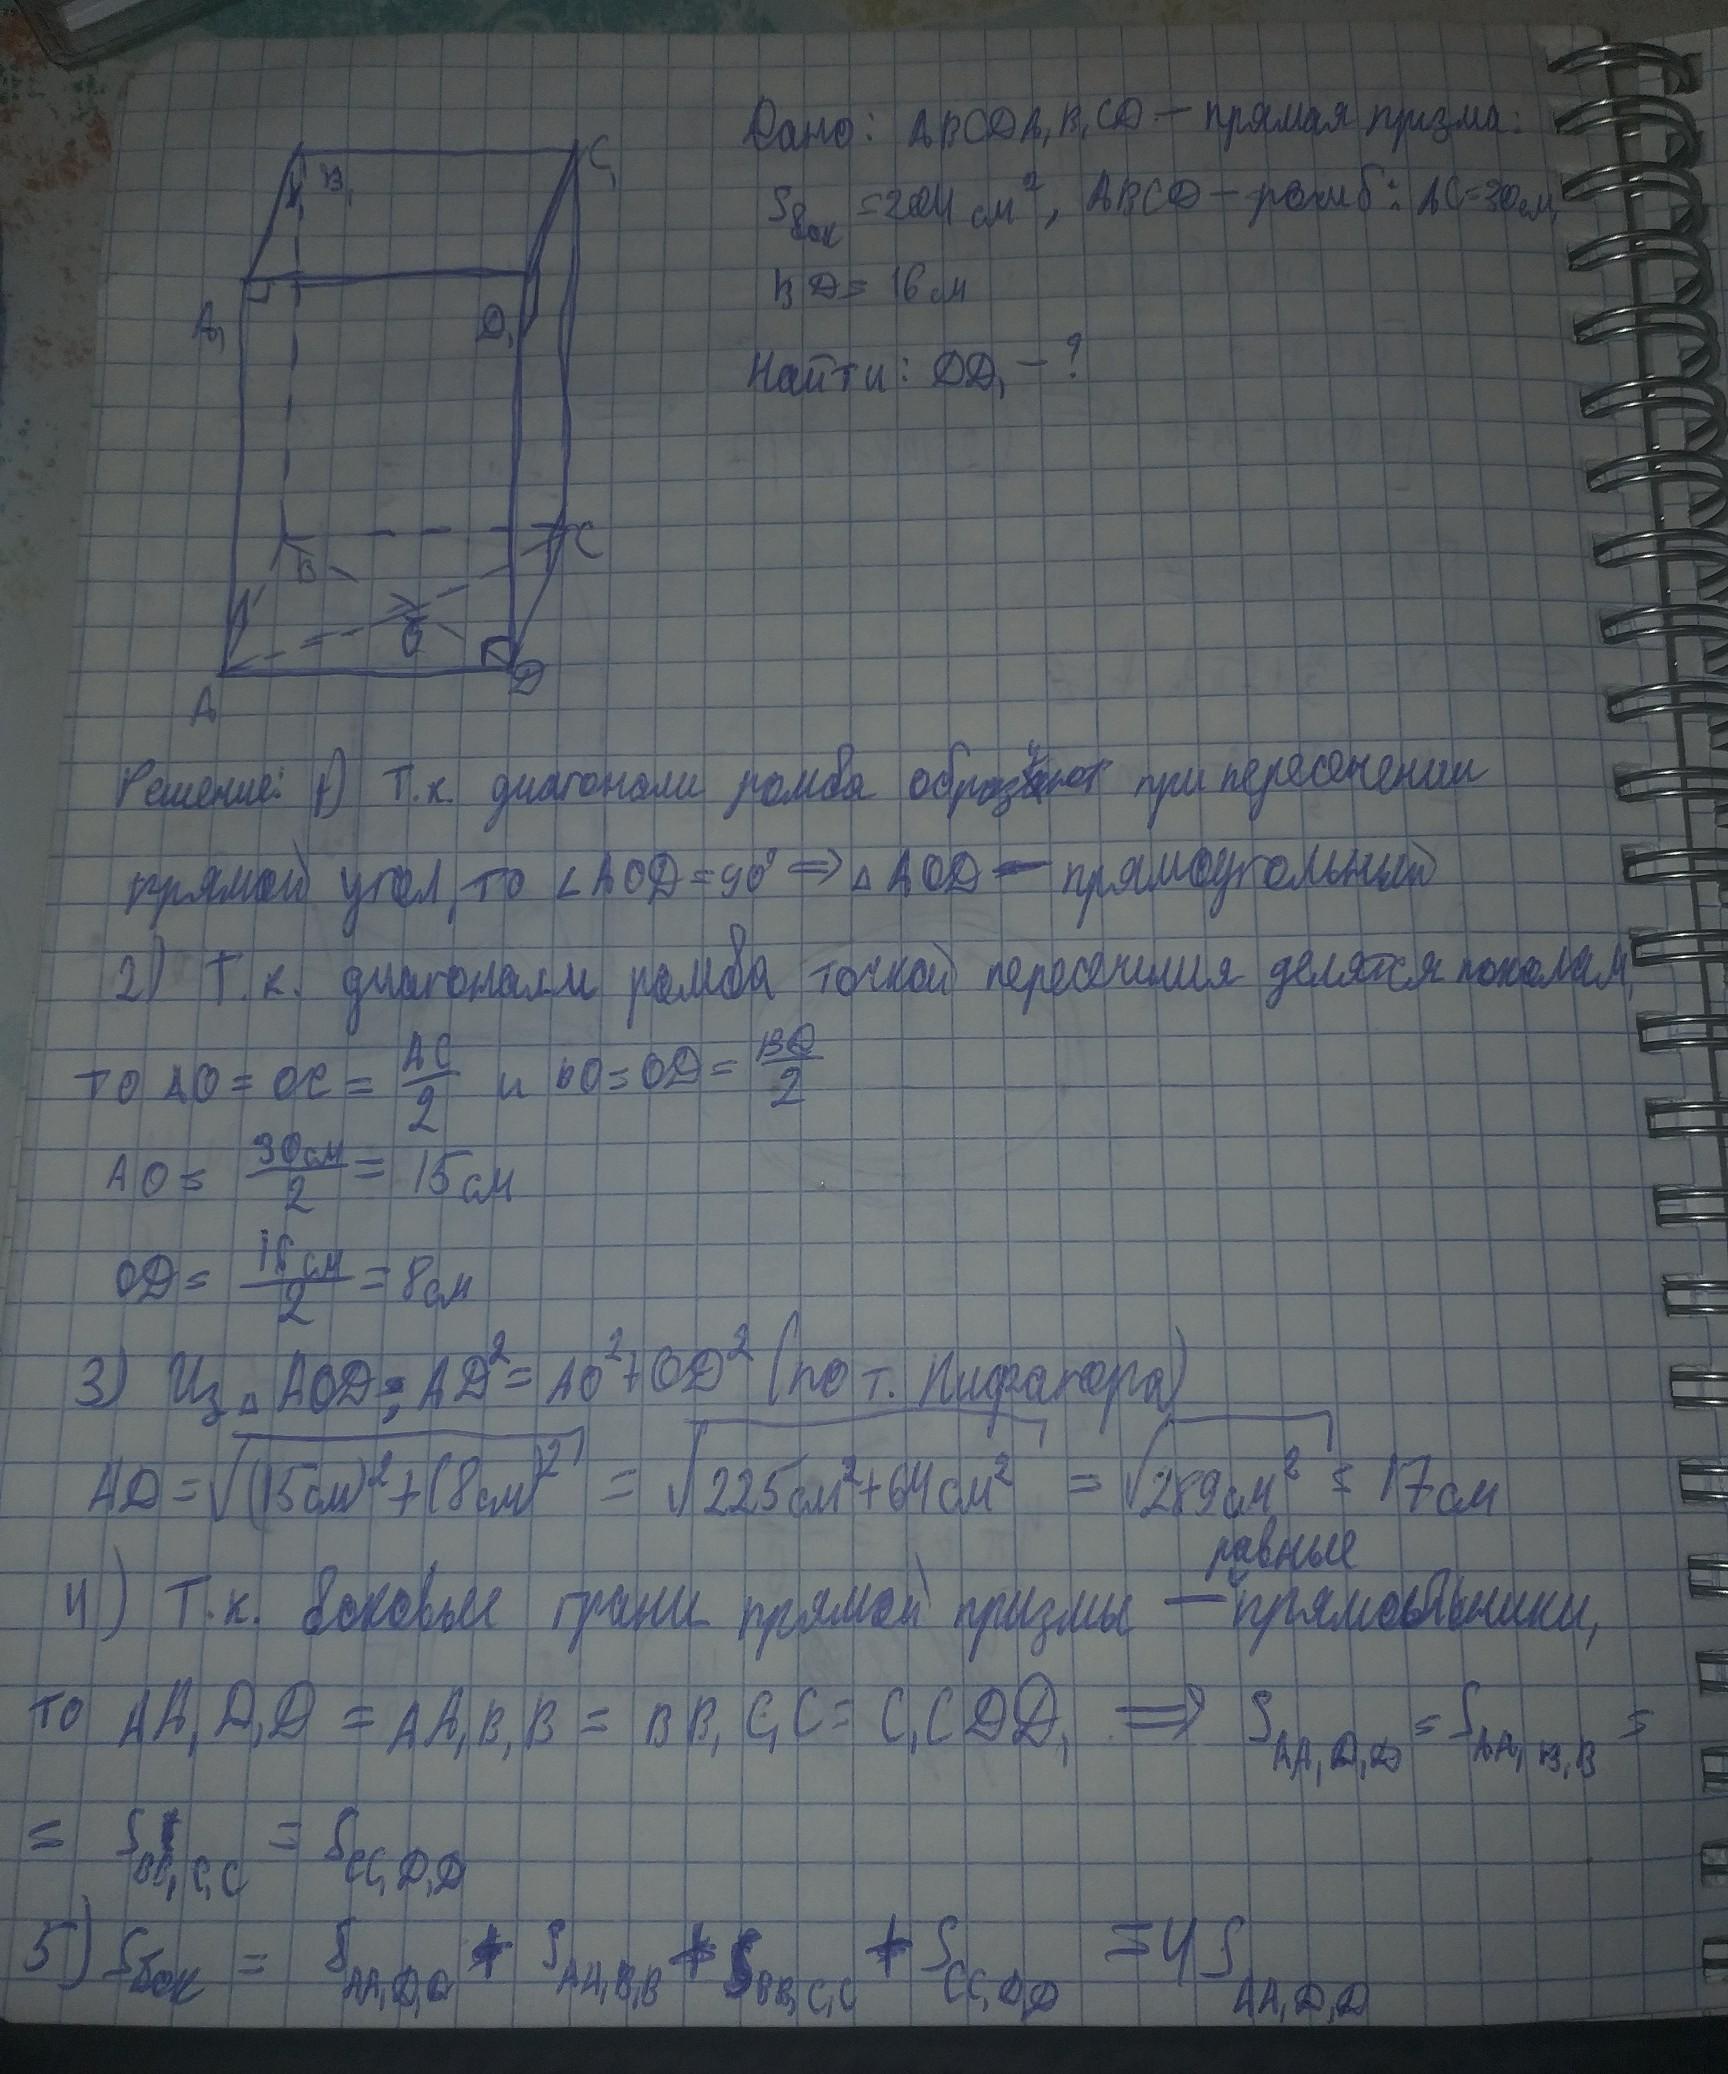 Дано: ABCDA₁B₁CD – прямая призма:
Sбок = 204 см², ABCD – ромб: AC=30см,
BD = 16 см
Найти: DD₁ – ?
B₁
C₁
A₁
D₁
B
C
O
A
D
Решение: 1) Т.к. диагонали ромба образуют при пересечении
прямой угол, то ∠AOD=90° ⇒ △AOD – прямоугольный
2) Т.к. диагонали ромба точкой пересечения делятся пополам,
то AO = OC = AC/2 и BO = OD = BD/2
AO = 30см/2 = 15 см
OD = 16 см/2 = 8 см
3) Из △AOD: AD² = AO² + OD² (по т. Пифагора)
AD = √((15см)² + (8см)²) = √(225см² + 64см²) = √(289см²) = 17 см
равные
4) Т.к. боковые грани прямой призмы – прямоугольники,
то AA₁D₁D = AA₁B₁B = BB₁C₁C = C₁CDD₁ ⇒ S AA₁D₁D = S AA₁B₁B =
= S BB₁C₁C = S CC₁D₁D
5) Sбок = S AA₁D₁D + S AA₁B₁B + S BB₁C₁C + S CC₁D₁D = 4S AA₁D₁D